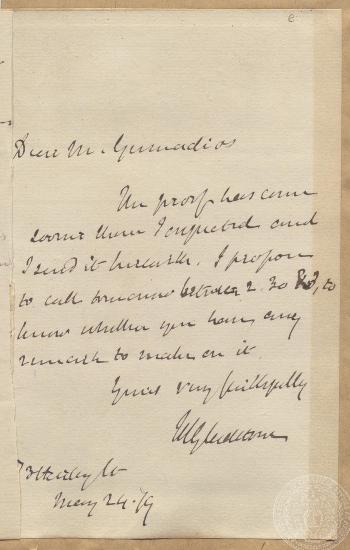 Dear M. Gennadios
The proof has come
sooner than I expected and
I send it herewith. I propose
to call tomorrow between 2.30 & 3, to
know whether you have any
remark to make on it.
Yours very faithfully
WEGladstone
73 Harley St
May 24. 79